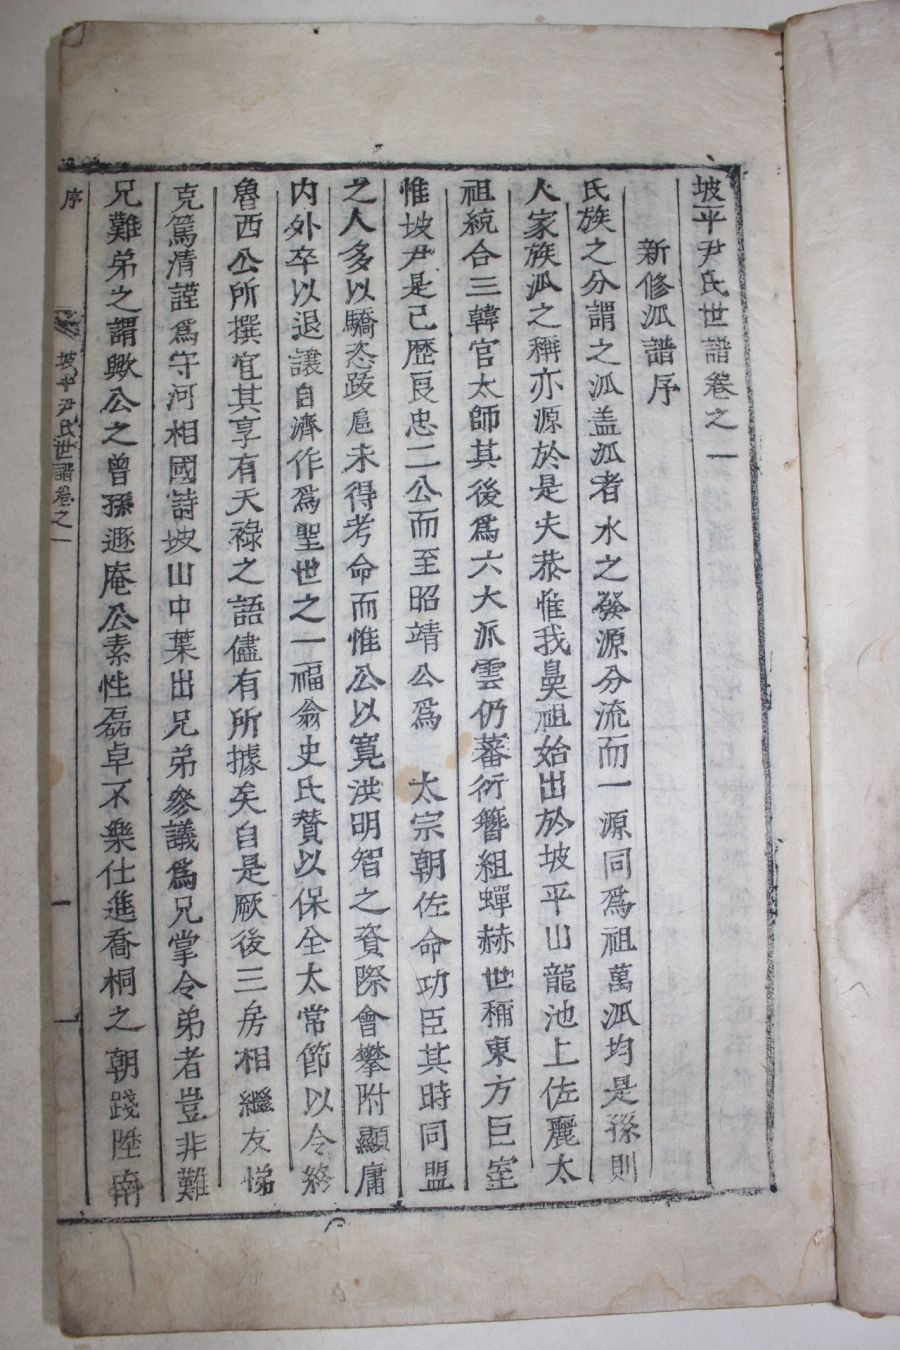 坡平尹氏世譜卷之一
新修派譜序
氏族之分謂之派盖派者水之發源分流而一源同爲祖萬派均是孫則
人家族派之稱亦源於是夫恭惟我鼻祖始出於坡平山龍池上佐麗太
祖統合三韓官太師其後爲六大派雲仍蕃衍簪組蟬赫世稱東方巨室
惟坡尹是己歷良忠二公而至昭靖公爲 太宗朝佐命功臣其時同盟
之人多以驕恣跋扈未得考命而惟公以寬洪明智之資際會攀附顯庸
内外卒以退讓自濟作爲聖世之一福翁史氏贊以保全太常節以令終
魯西公所撰宜其享有天祿之語儘有所據矣自是厥後三房相繼友悌
克篤清謹爲守河相國詩坡山中葉出兄弟叅議爲兄掌令弟者豈非難
兄難弟之謂歟公之曾孫遯庵公素性磊卓不樂仕進喬桐之朝踐陞南
序
坡平尹氏世譜卷之一